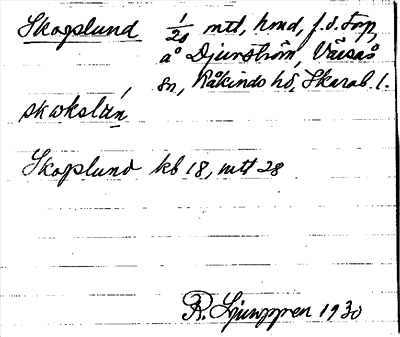 Skogslund 1/20 mtl, hmd, f.d. torp
å Djurström, Våmsås
sn, Kåkinds hd, Skarab. l.
skωkslωn
Skogslund kb 18, mtl 28
R. Ljunggren 1930